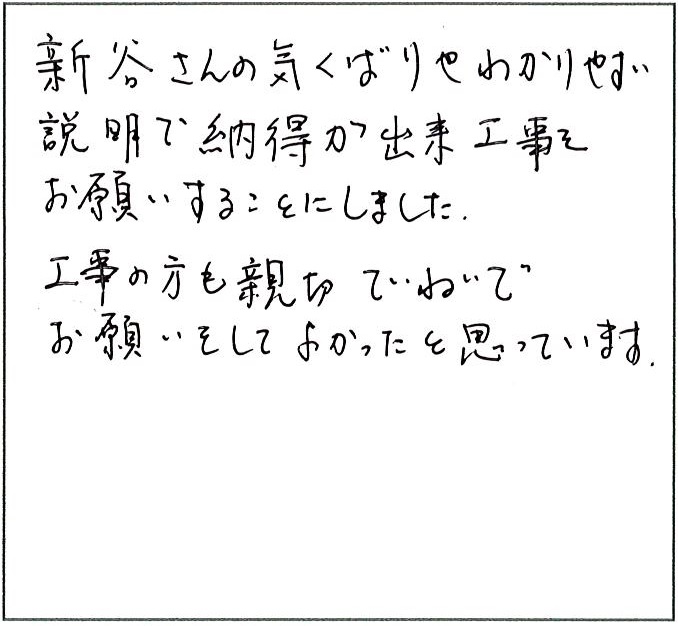 新谷さんの気くばりやわかりやすい
説明で納得が出来工事を
お願いすることにしました.
工事の方も親切ていねいで
お願いをしてよかったと思っています.